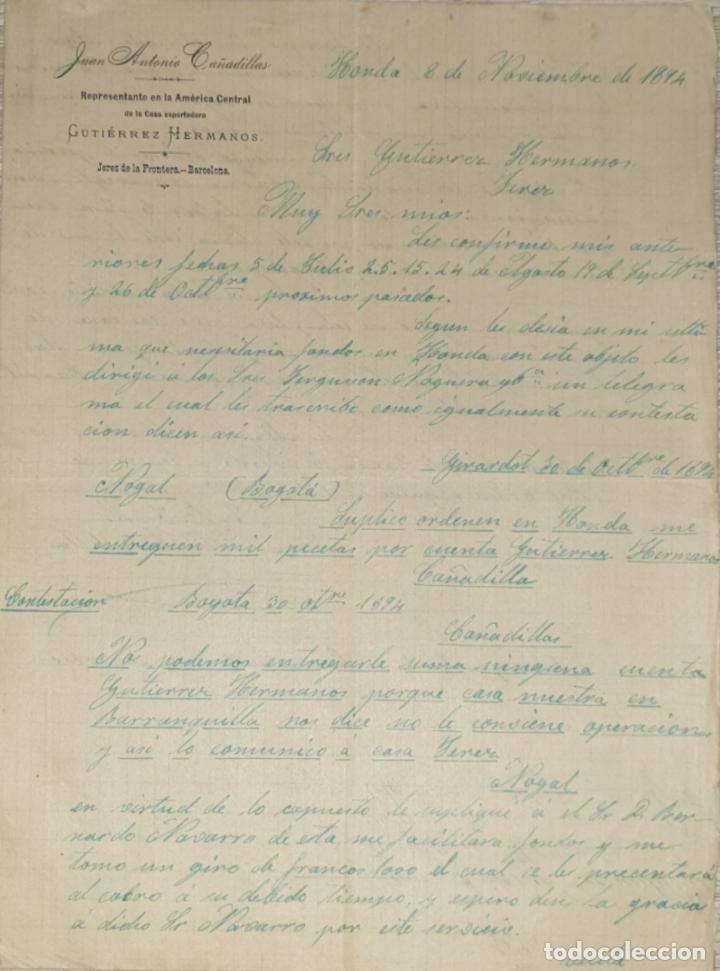 Juan Antonio Cañadillas
Representante en la América Central
de la Casa exportadora
GUTIÉRREZ HERMANOS.
Jerez de la Frontera.—Barcelona.
Honda 8 de Noviembre de 1894
Sres Gutierrez Hermanos
Jerez
Muy Sres mios:
Les confirmo mis ante
riores fechas 5 de Julio 2.5.15.24 de Agosto 19 de Septbre
y 26 de Octbre proximos pasados.
Segun les desia en mi ulti
ma que nesesitaria fondos en Honda con este objeto les
dirigi á los Sres Ferguson Noguera y Cª un telegra
ma el cual les trascribo como igualmente su contesta
cion dicen asi.
Girardot 30 de Octbre de 1894
Nogal (Bogotá)
Suplico ordenen en Honda me
entreguen mil pecetas por cuenta Gutierrez Hermanos
Cañadilla
Contestacion Bogota 30 Otbre 1894
Cañadillas
No podemos entregarle suma ninguna cuenta
Gutierrez Hermanos porque casa nuestra en
Barranquilla nos dice no le conviene operacion
y asi lo comunico á casa Jerez
Nogal
en virtud de lo espuesto le suplique á el Sr D. Ber
nardo Navarro de esta, me facilitara fondos y me
tomo un giro de francos 1000 el cual se les precentará
al cobro á su debido tiempo, y espero den la gracia
á dicho Sr Navarro por este servicio.
todocoleccion